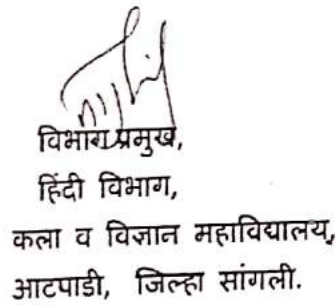 विभाग प्रमुख,
हिंदी विभाग,
कला व विज्ञान महाविद्यालय,
आटपाडी, जिल्हा सांगली.